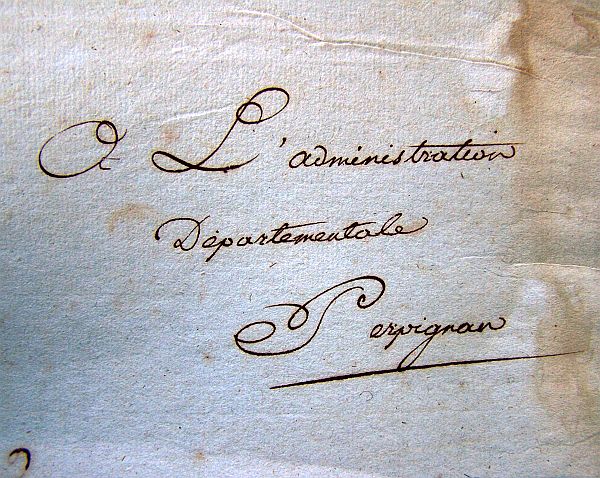 A L'administration
Départementale
Perpignan